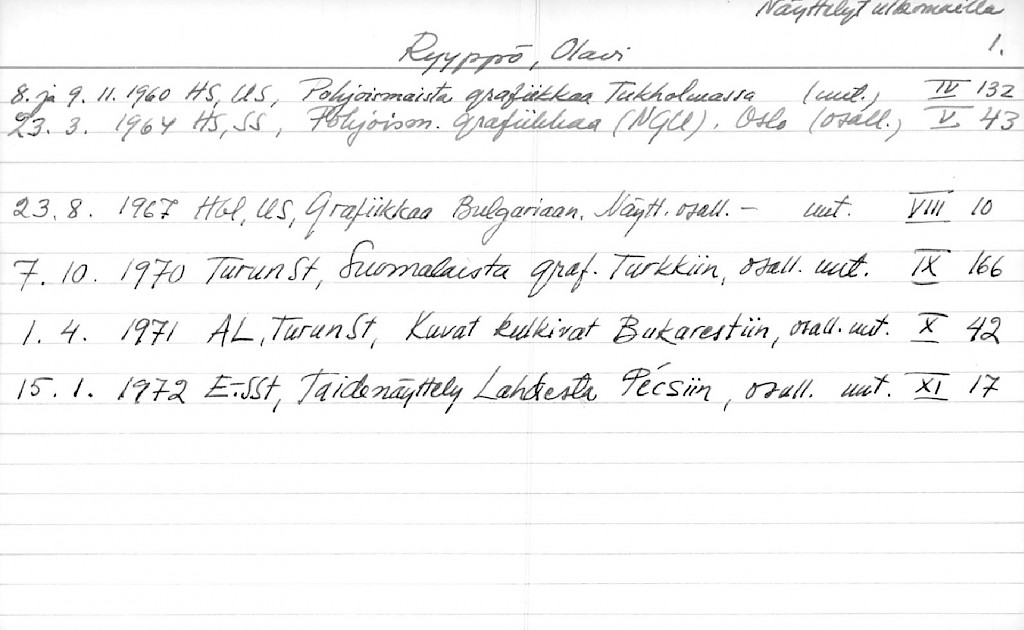 Näyttelyt ulkomailla
Ryyppö, Olavi 1.
8. ja 9. 11. 1960 HS, US, Pohjoismaista grafiikkaa Tukholmassa (uut.) IV 132
23. 3. 1964 HS, SS, Pohjoism. Grafiikkaa (NGU). Oslo (osall.) V 43
23. 8. 1967 Hbl, US, Grafiikkaa Bulgariaan. Näytt. osall. - uut. VIII 10
7. 10. 1970 TurunSt, Suomalaista graf. Turkkiin, osall. uut. IX 166
1. 4. 1971 AL, TurunSt, Kuvat kulkivat Bukarestiin, osall. uut. X 42
15. 1. 1972 E-SSt, Taidenäyttely Lahdesta Pécsiin, osall. uut. XI 17